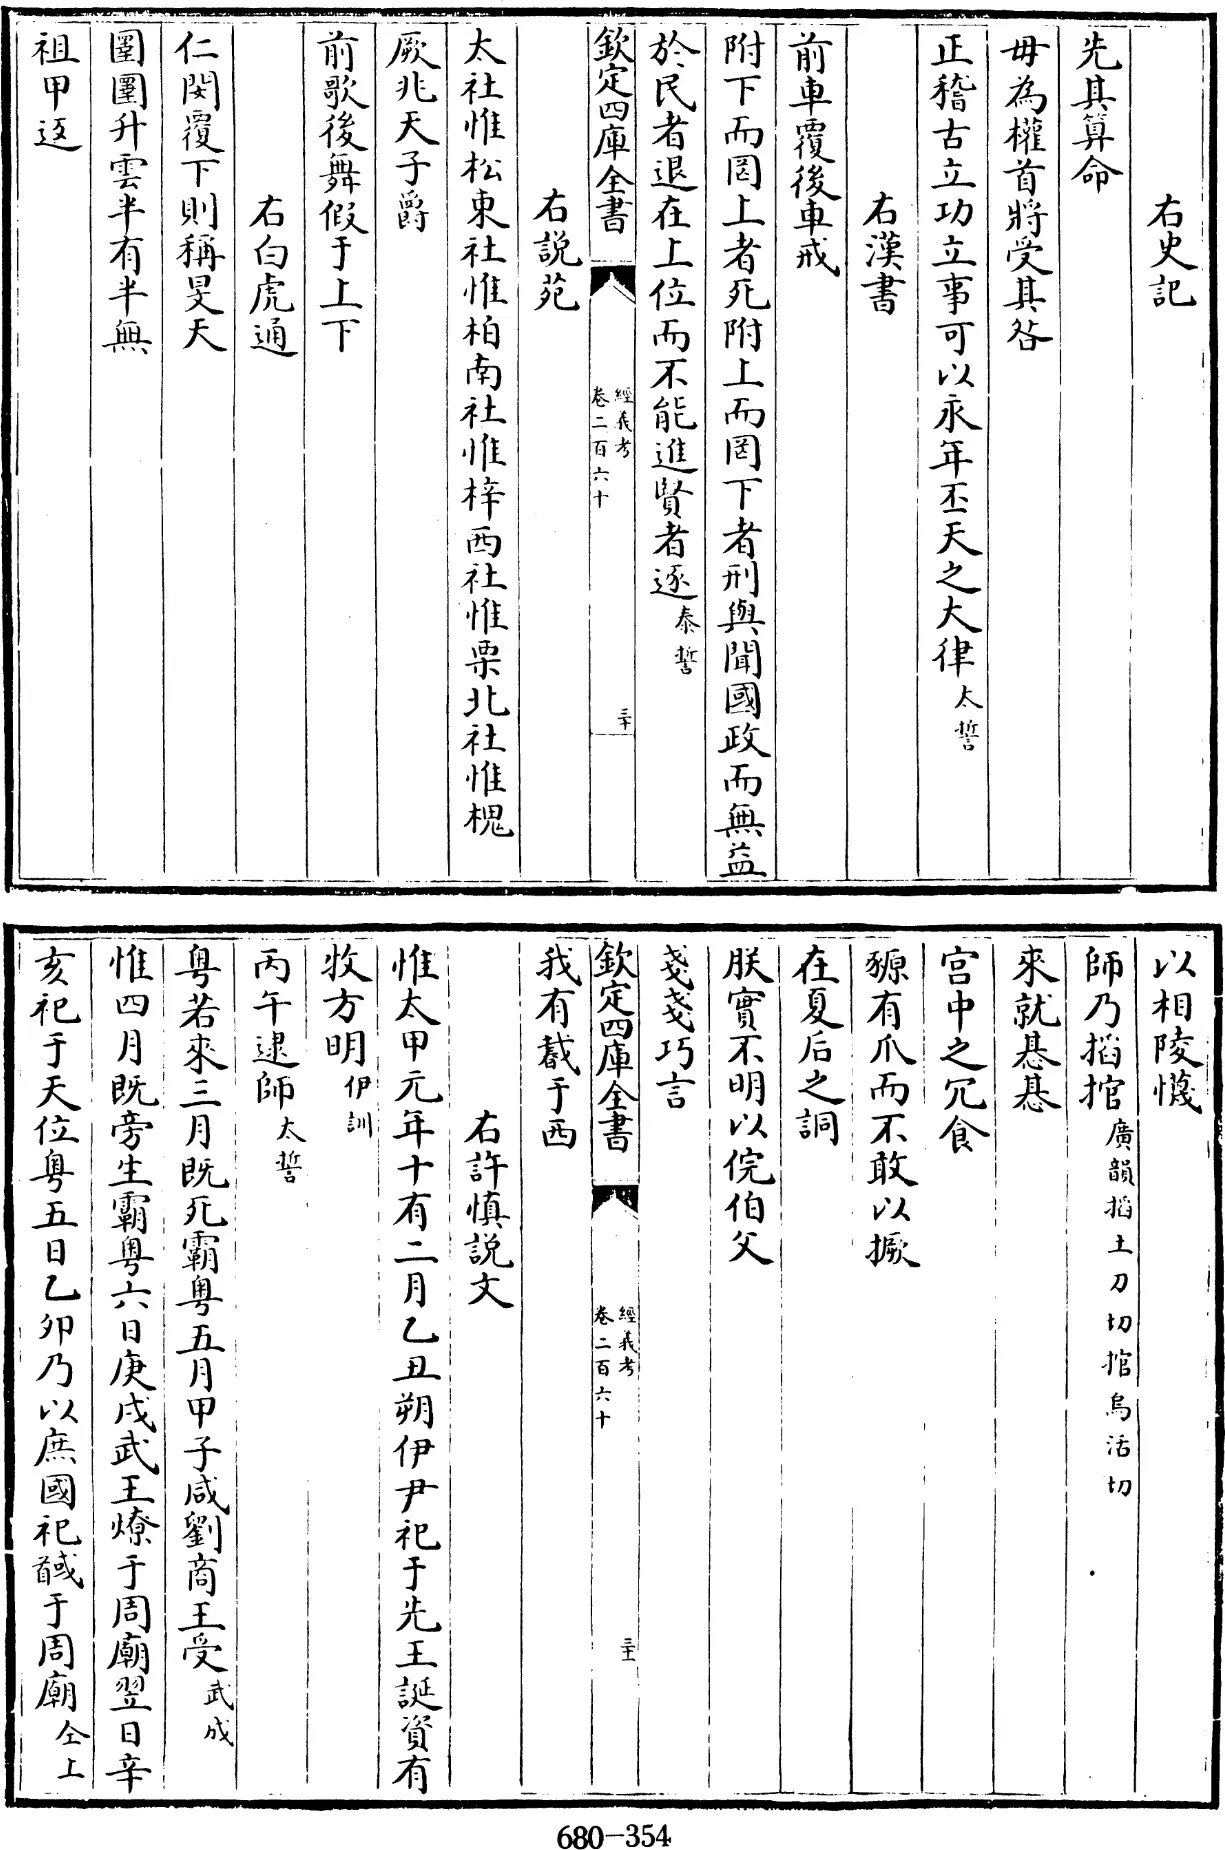 右史記
先其算命
毋為權首將受其咎
正稽古立功立事可以永年丕天之大律太誓
右漢書
前車覆後車戒
附下而罔上者死附上而罔下者刑與聞國政而無益
於民者退在上位而不能進賢者逐泰誓
欽定四庫全書
經義考
卷二百六十
三十
右説苑
太社惟松東社惟柏南社惟梓西社惟栗北社惟槐
厥兆天子爵
前歌後舞假于上下
右白虎通
仁閔覆下則稱旻天
圛圛升雲半有半無
祖甲返
以相陵懱
師乃搯掍廣韻搯土刀切掍烏活切
來就惎惎
宫中之冗食
豲有爪而不敢以撅
在夏后之詷
朕實不明以俒伯父
戔戔巧言
欽定四庫全書
經義考
卷二百六十
三十一
我有𢧢于西
右許慎説文
惟太甲元年十有二月乙丑朔伊尹祀于先王誕資有
牧方明伊訓
丙午逮師太誓
粤若來三月既死霸粤五月甲子咸劉商王受武成
惟四月既旁生霸粤六日庚戌武王燎于周廟翌日辛
亥祀于天位粤五日乙卯乃以庶國祀馘于周廟仝上
680-354